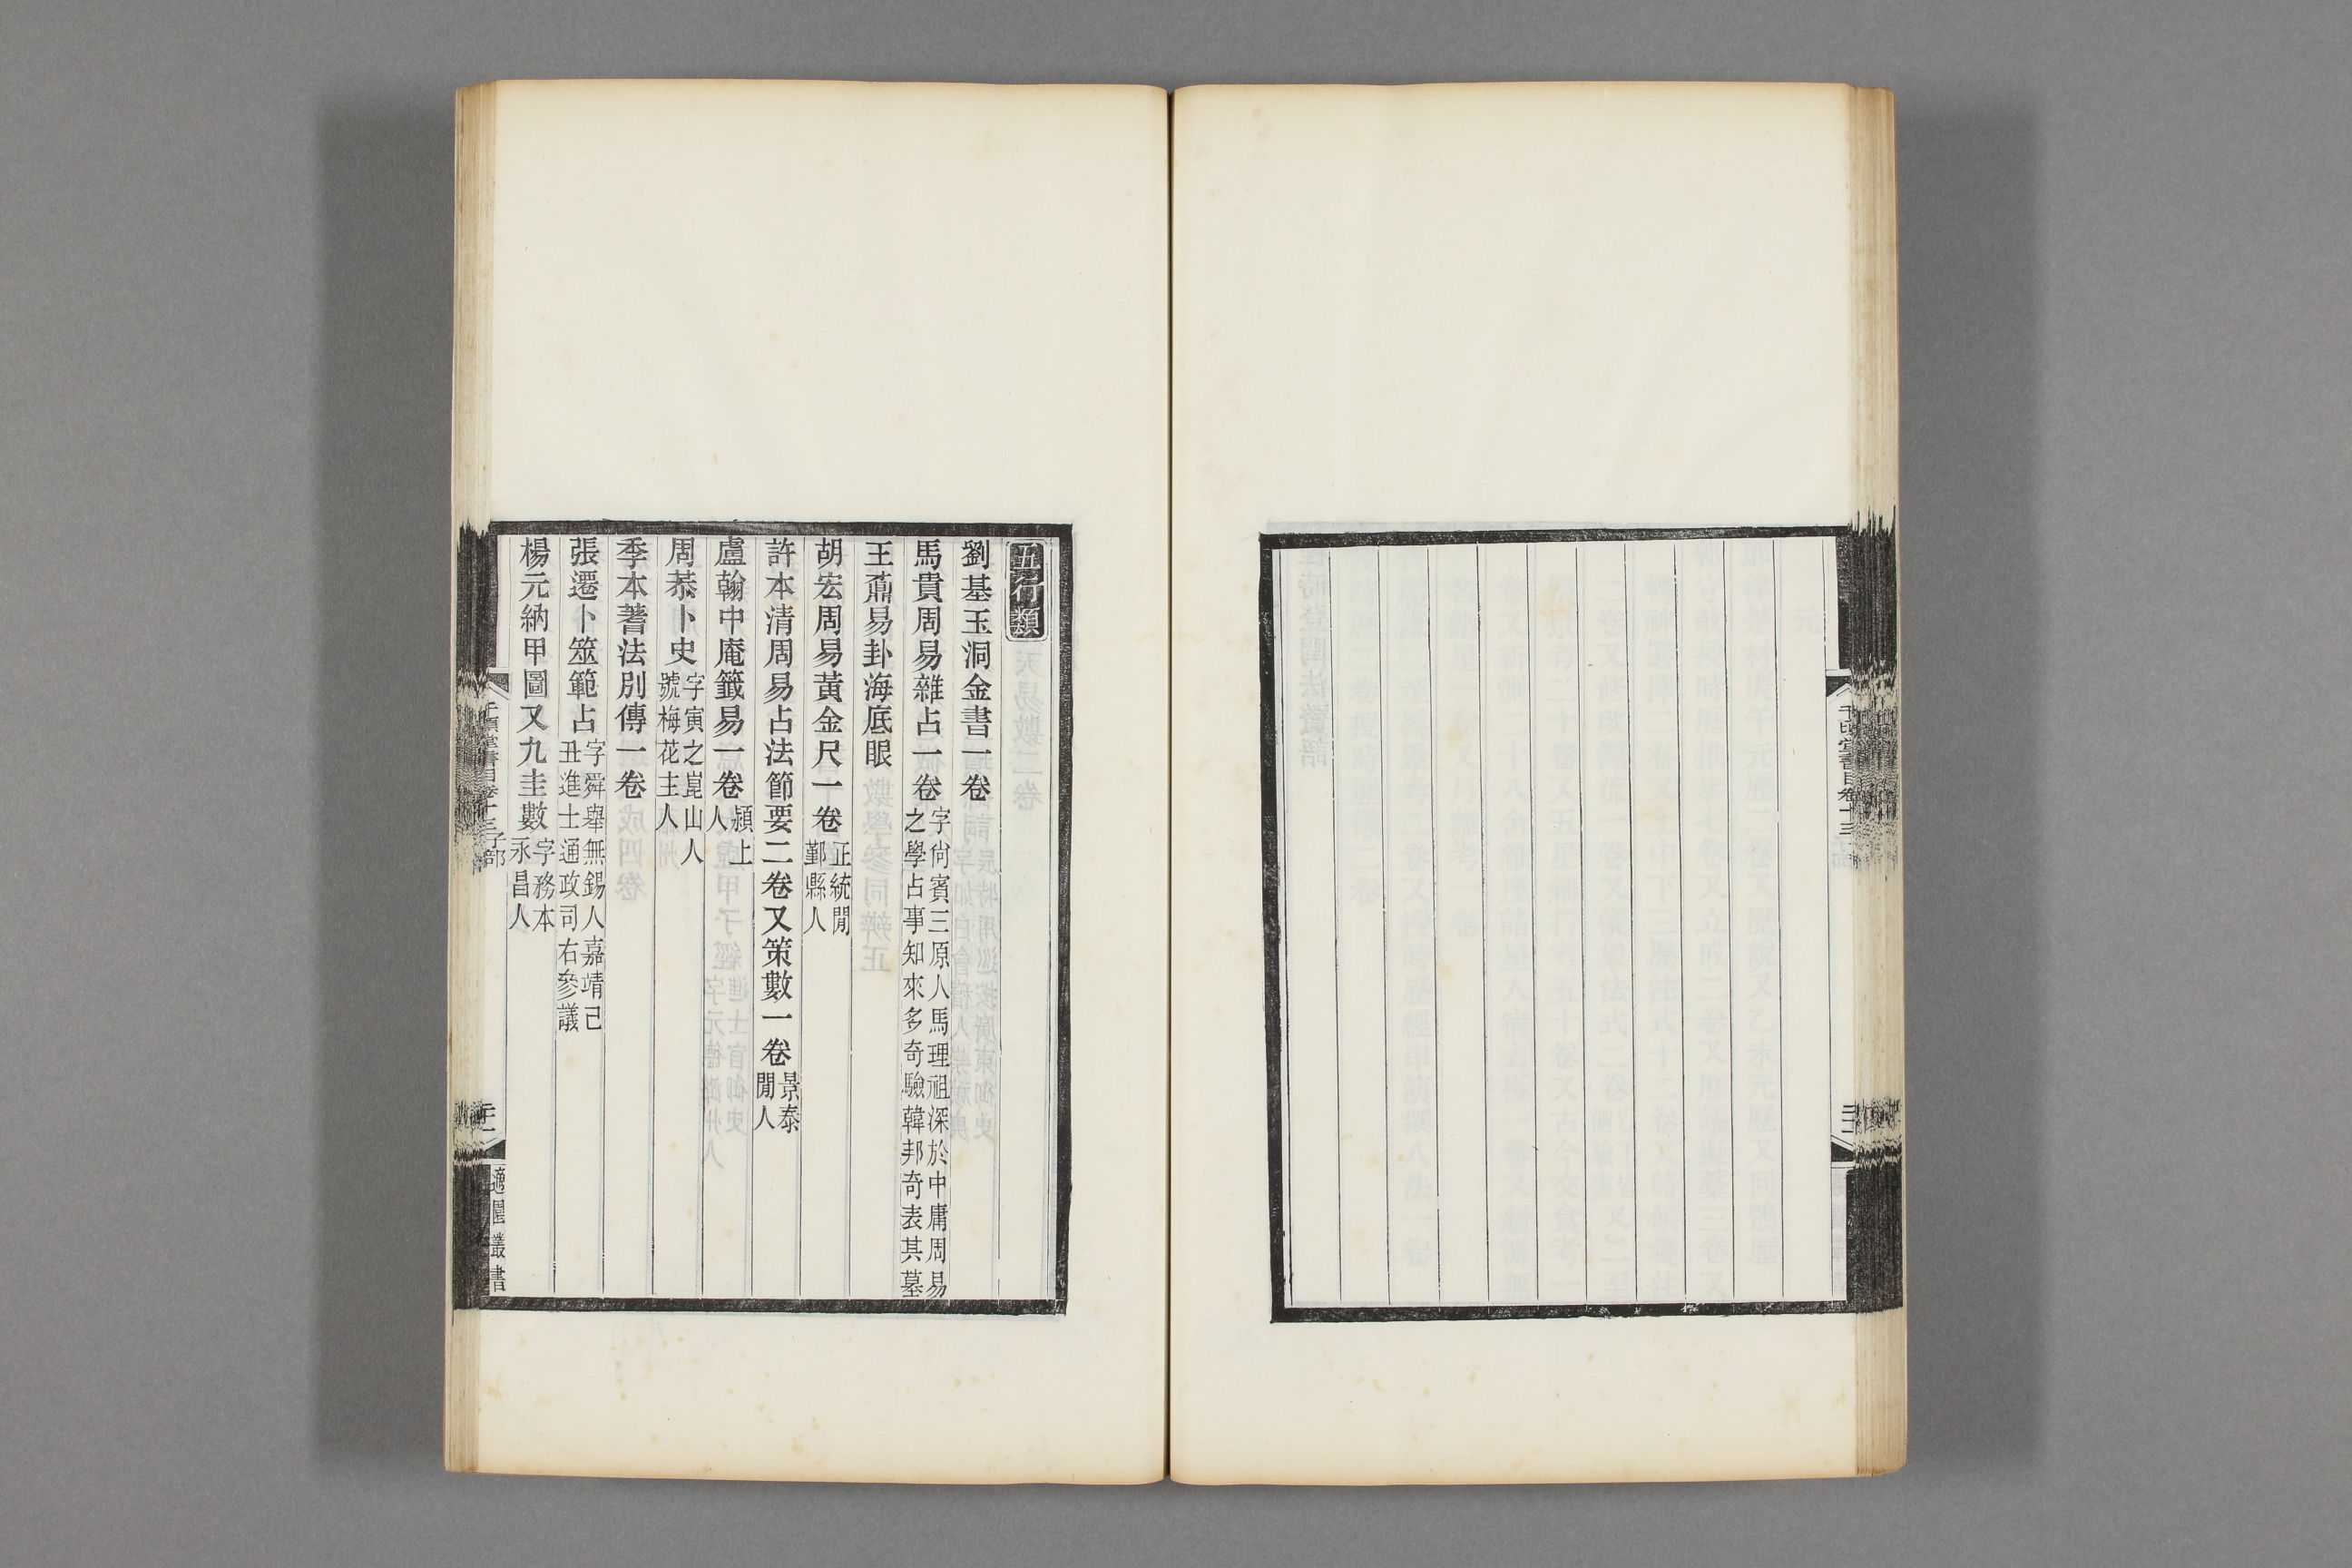 千頃堂書目卷十三
五行類
劉基玉洞金書一卷
馬貴周易雜占一卷字尙賓三原人馬理祖深於中庸周易
之學占事知來多奇驗韓邦奇表其墓
王鼒易卦海底眼
胡宏周易黃金尺一卷正統閒
鄞縣人
許本清周易占法節要二卷又策數一卷景泰
閒人
盧翰中庵籤易一卷潁上
人
周菾卜史字寅之崑山人
號梅花主人
季本蓍法別傳一卷
張遷卜筮範占字舜舉無錫人嘉靖己
丑進士通政司右參議
楊元納甲圖又九圭數字務本
永昌人
千頃堂書目卷十三子部
適園叢書